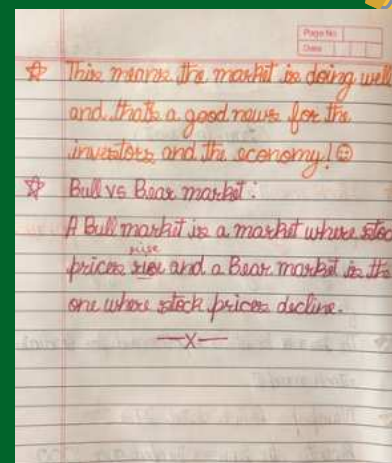 Page No
Date
☆ This means the market is doing well
and thats a good news for the
investors and the economy! ☺
☆ Bull vs Bear market:
A Bull market is a market where stoc
rise
prices rise and a Bear market is the
one where stock prices decline.
—x—